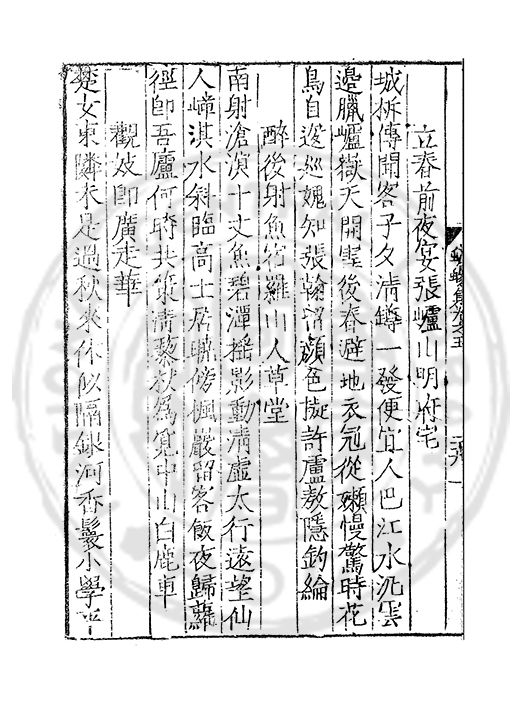 蠛蠓集卷之五
立春前夜宴張㠠山明府宅
城柝傳聞客子夕清罇一發便宜人巴江水泛雲
邊臘㠠嶽天開雪後春避地衣冠從嬾慢驚時花
鳥自逡巡媿知張翰留顏色擬許盧敖隱釣綸
醉後射魚竹羅川人草堂
南射滄溟十丈魚碧潭摇影動清虛太行遠望仙
人嶂淇水斜臨高士居曉傍楓巖留客飯夜歸蘿
徑即吾廬何時共策清藜杖爲覓中山白鹿車
觀妓即廣走華
楚女東隣未是過秋來休似隔銀河香鬟小學平